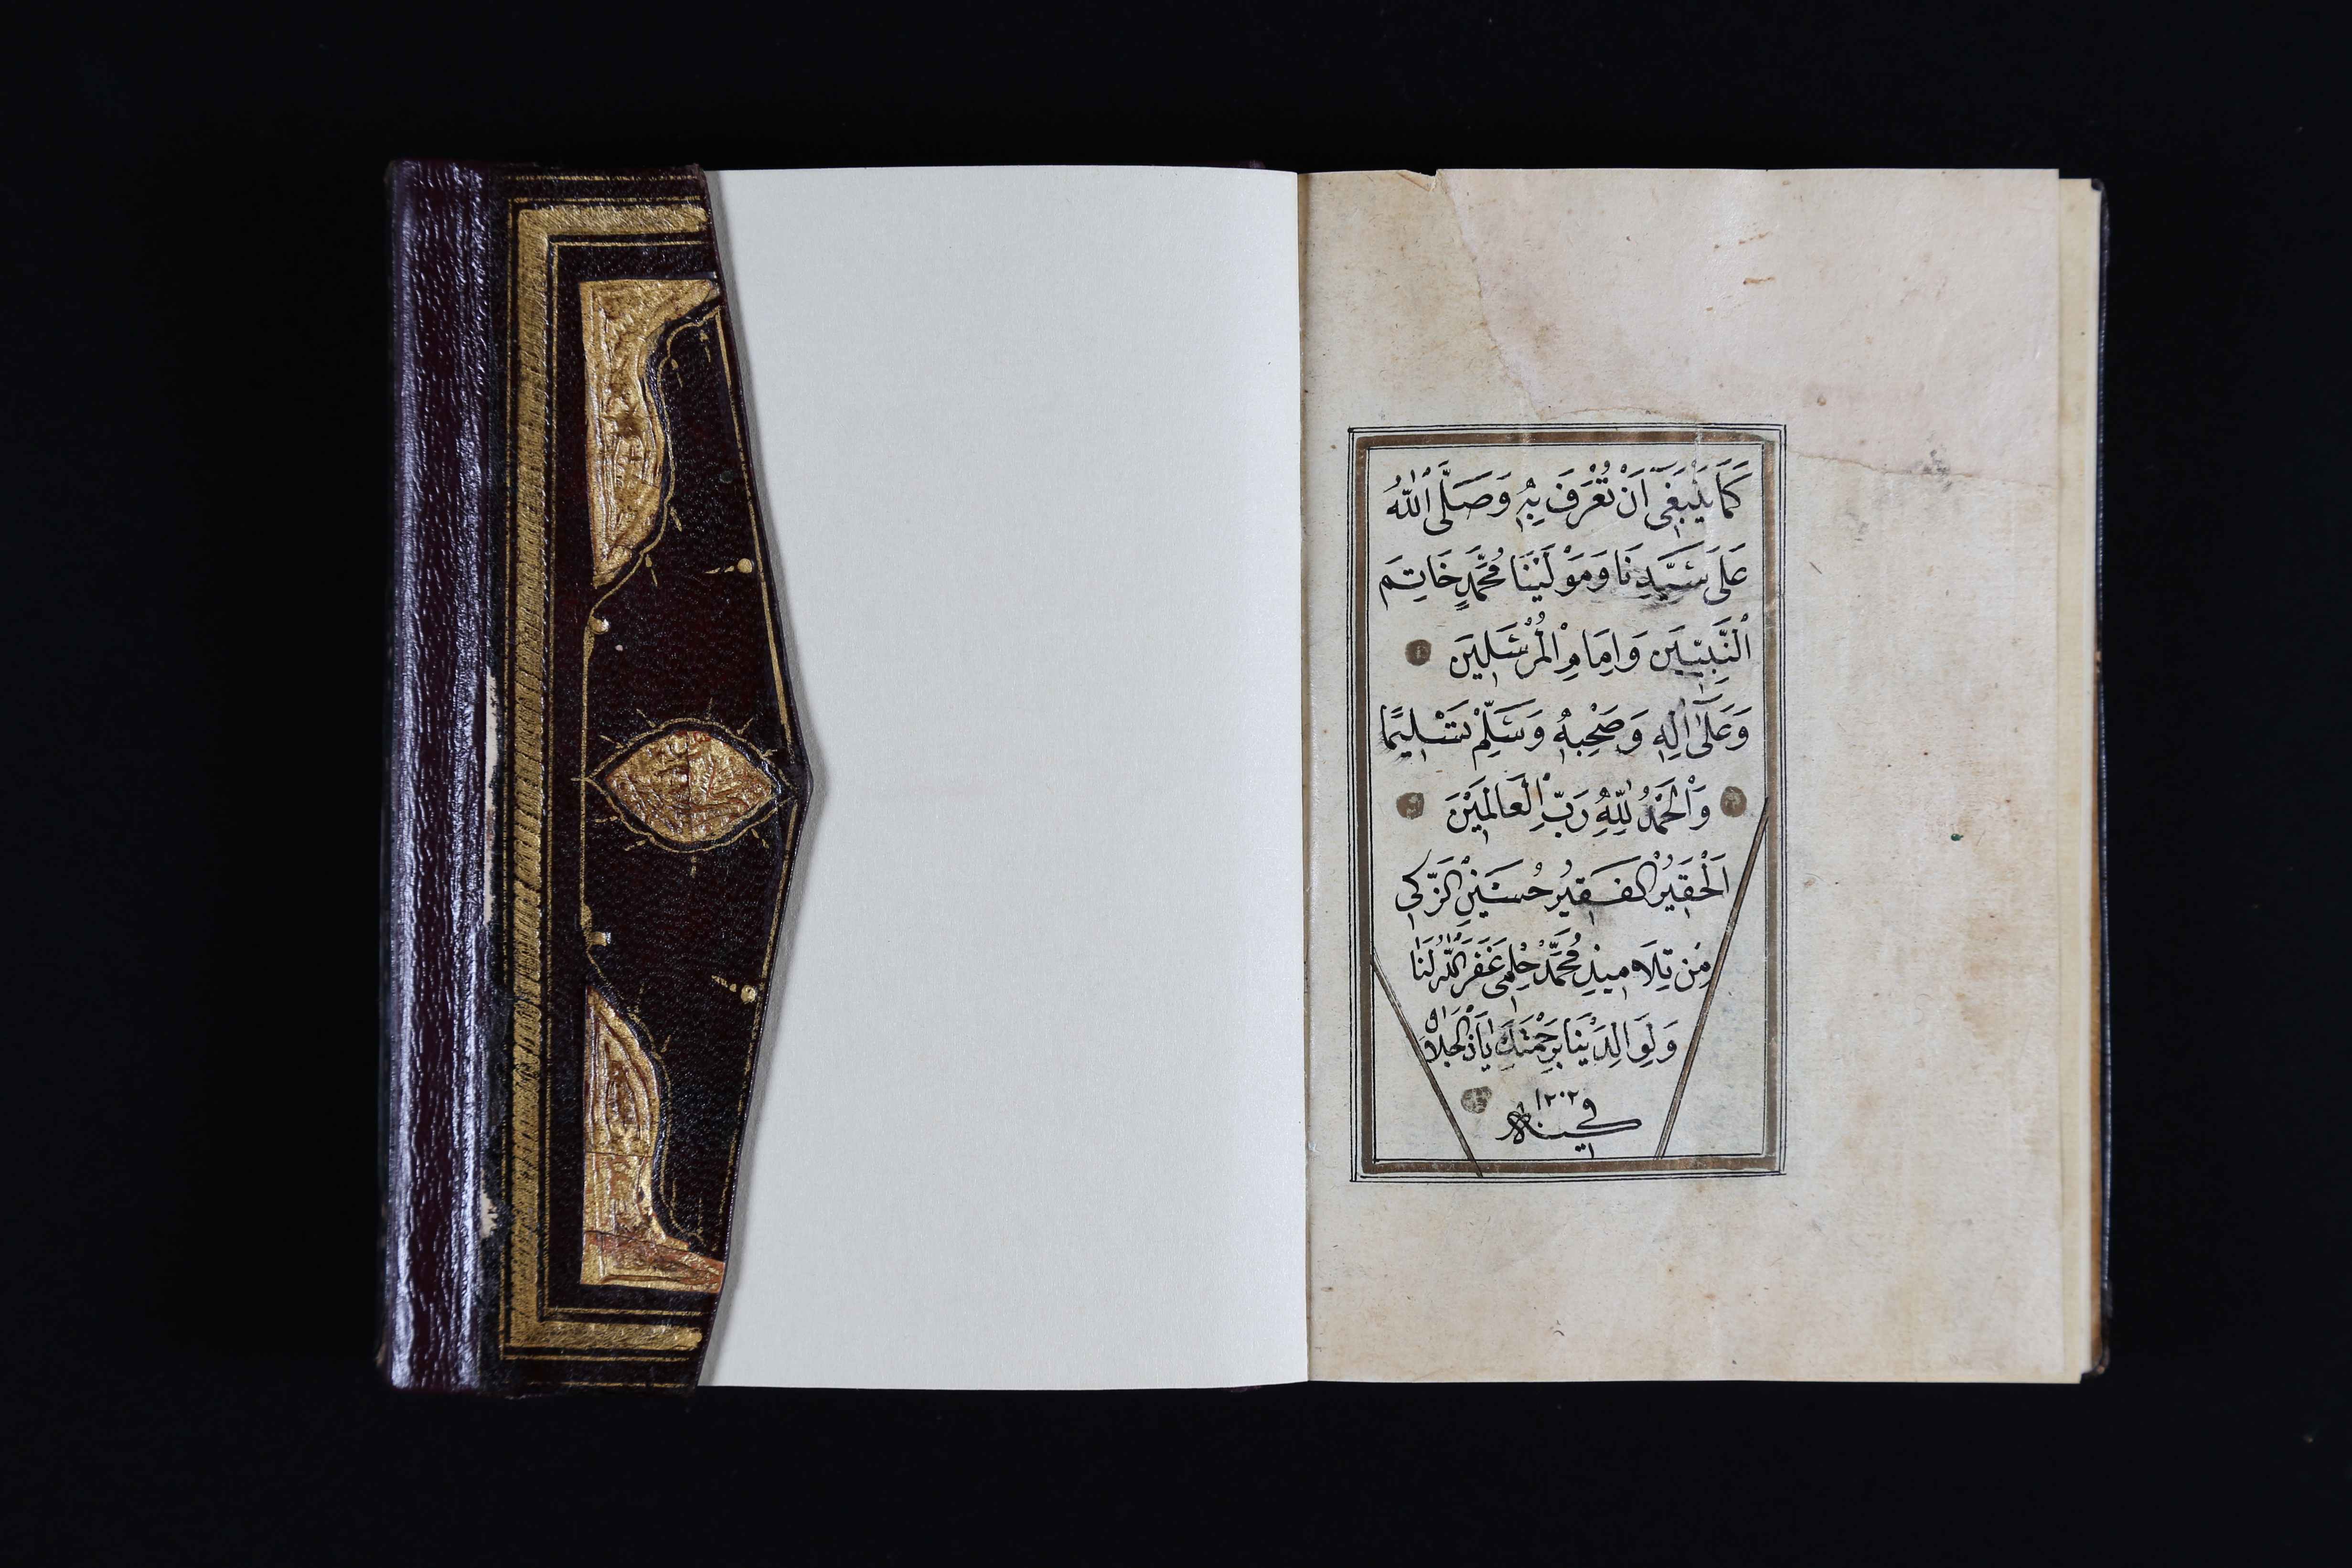 كَمَا يَنْبَغِي اَنْ تُعْرَفَ بِهِ وَصَلَّى اللّٰهُ
عَلَى سَيِّدِنَا وَمَوْلَيْنَا مُحَمَّدٍ خَاتِمَ
النَّبِيّيَن وَاِمَامِ الْمُرْسَلِيَن
وَعَلَى اٰلِهِ وَصَحْبِهِ وَسَلِّمْ تَسْلِيمًا
وَالْحَمْدُ لِلّٰهِ رَبِّ الْعَالَمِيْنَ
اَلْحَقِيْرُ الفَقِيْرُ حُسَيْنِ الزَّكِي
مِنْ تِلَامِيذِ مُحَمَّدْ حِلْمِى غَفَرَ اللّٰهُ لَنَا
وَلِوَالِدَيْنَا بِرَحْمَتِكَ يَاذَالْجَلَال
فى سنة ١٢٠٢